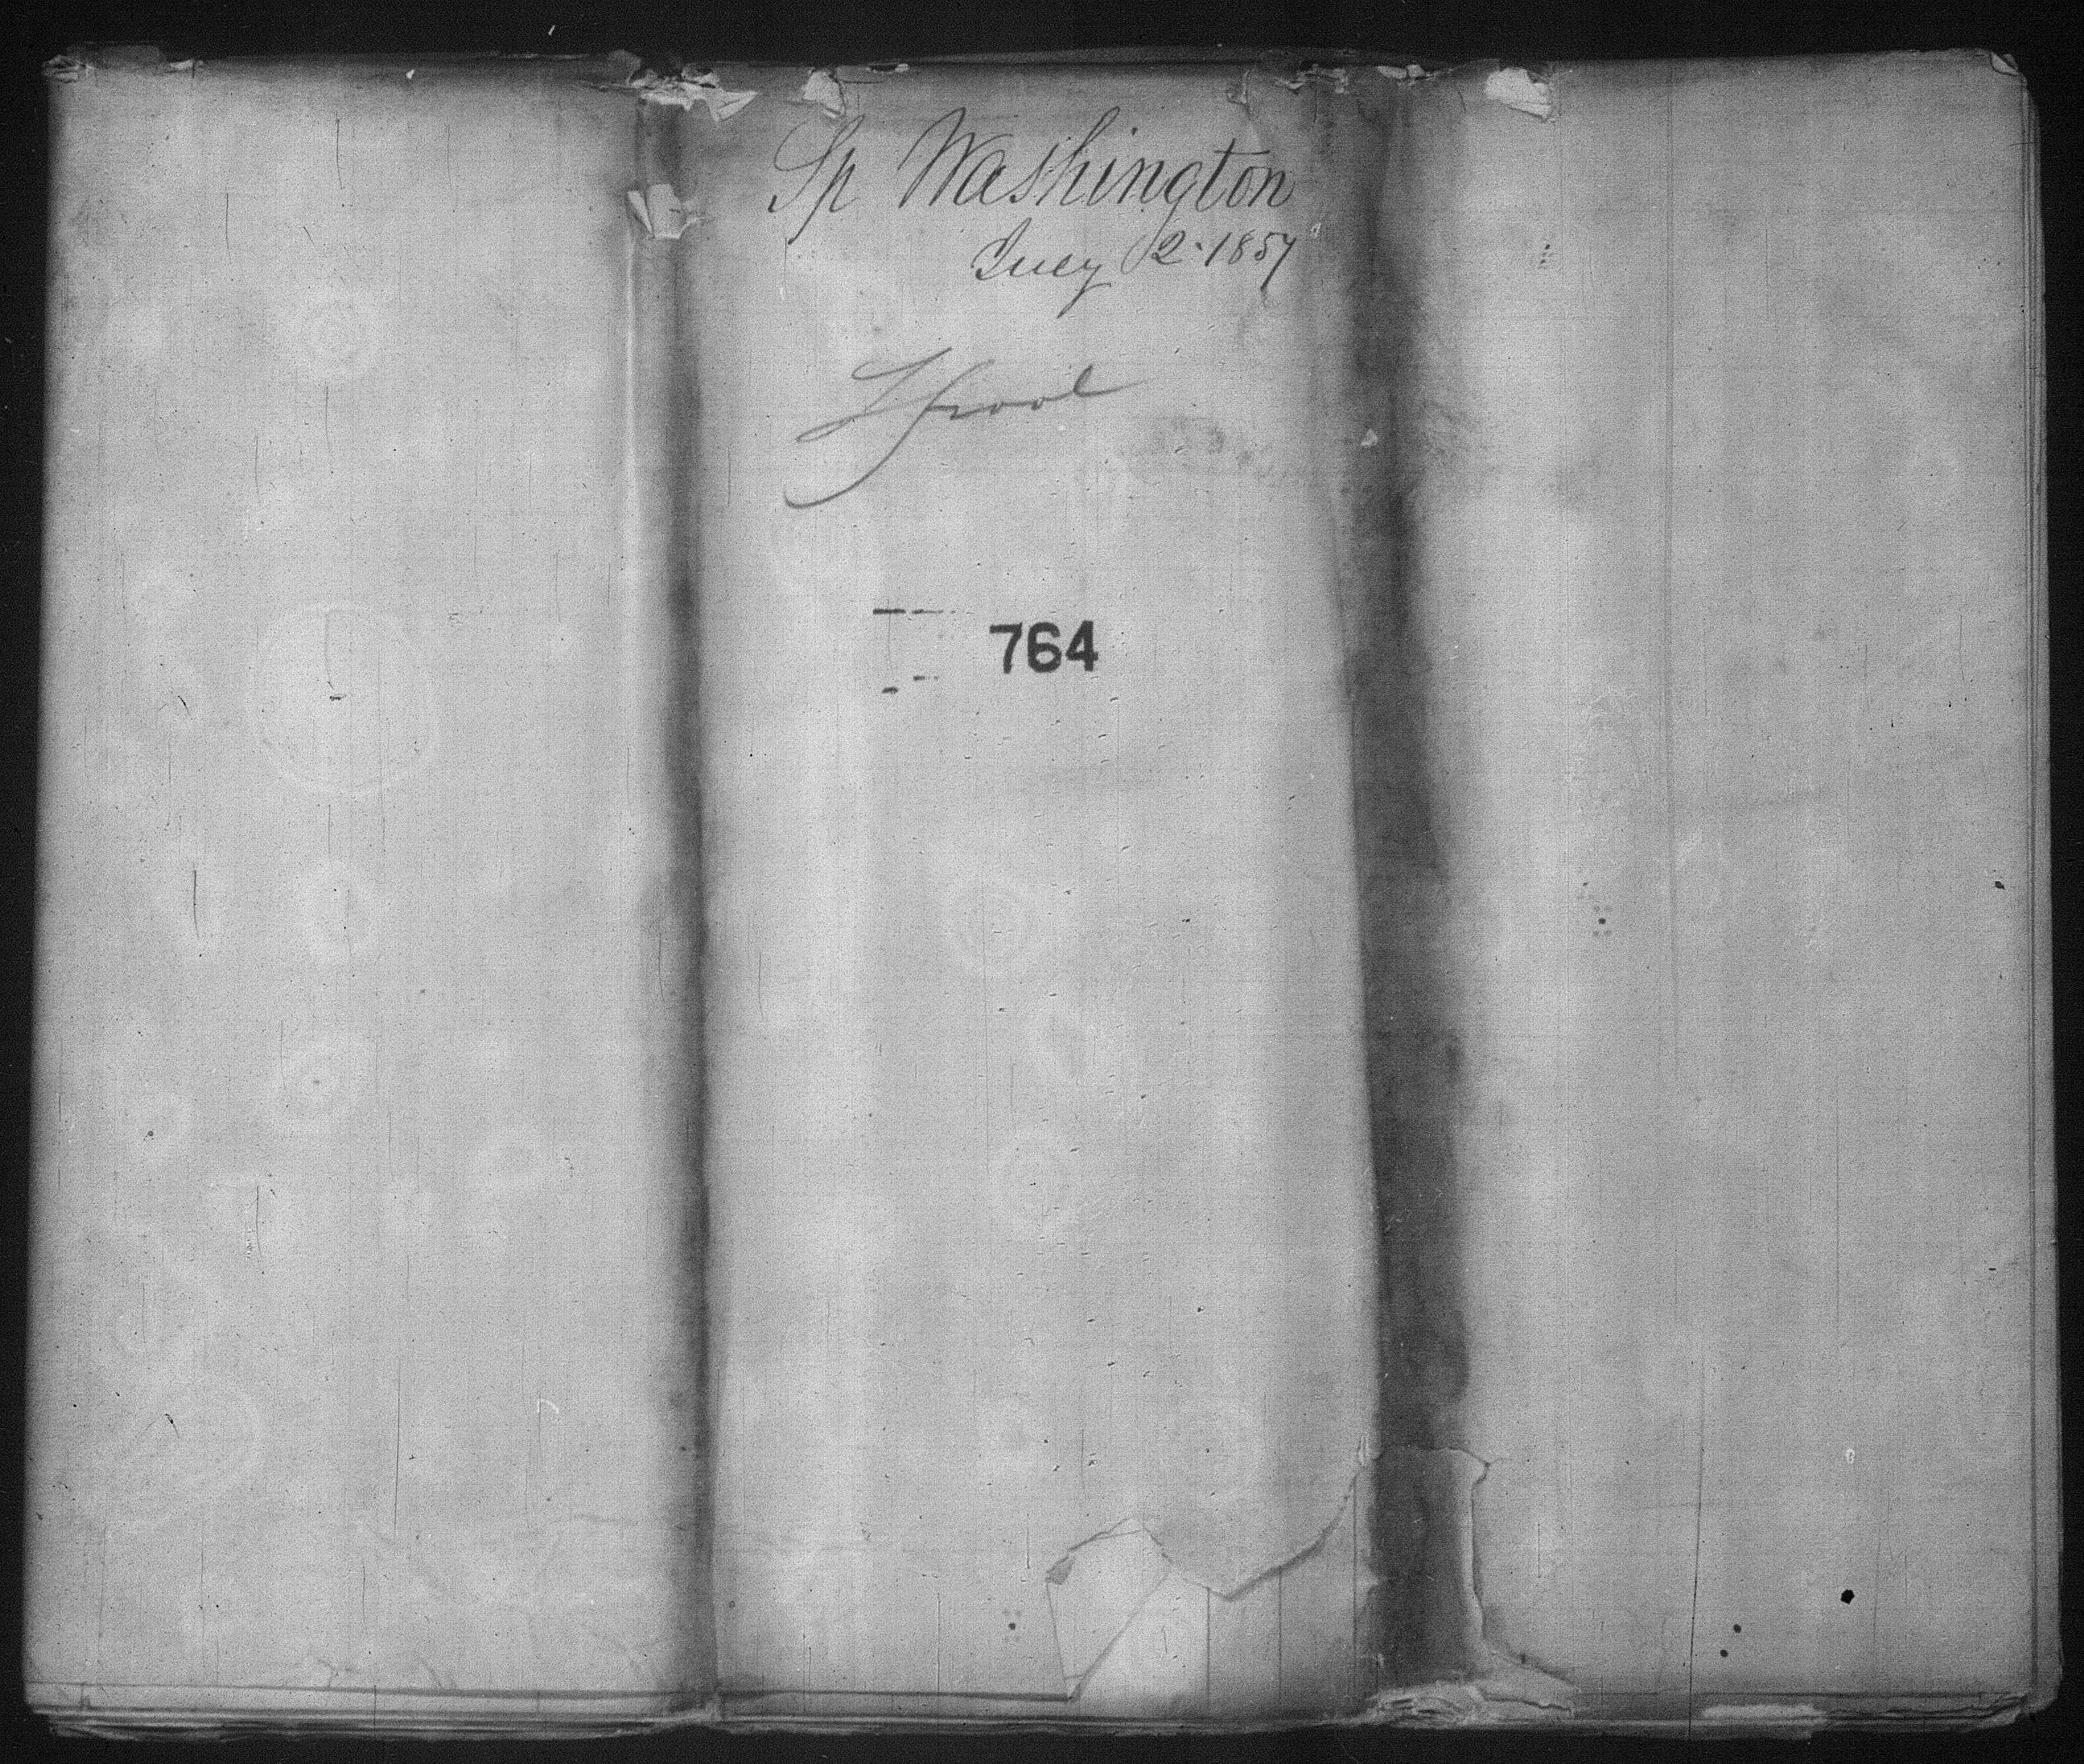 Sp Washington
July 2. 1857
Lfrool
764